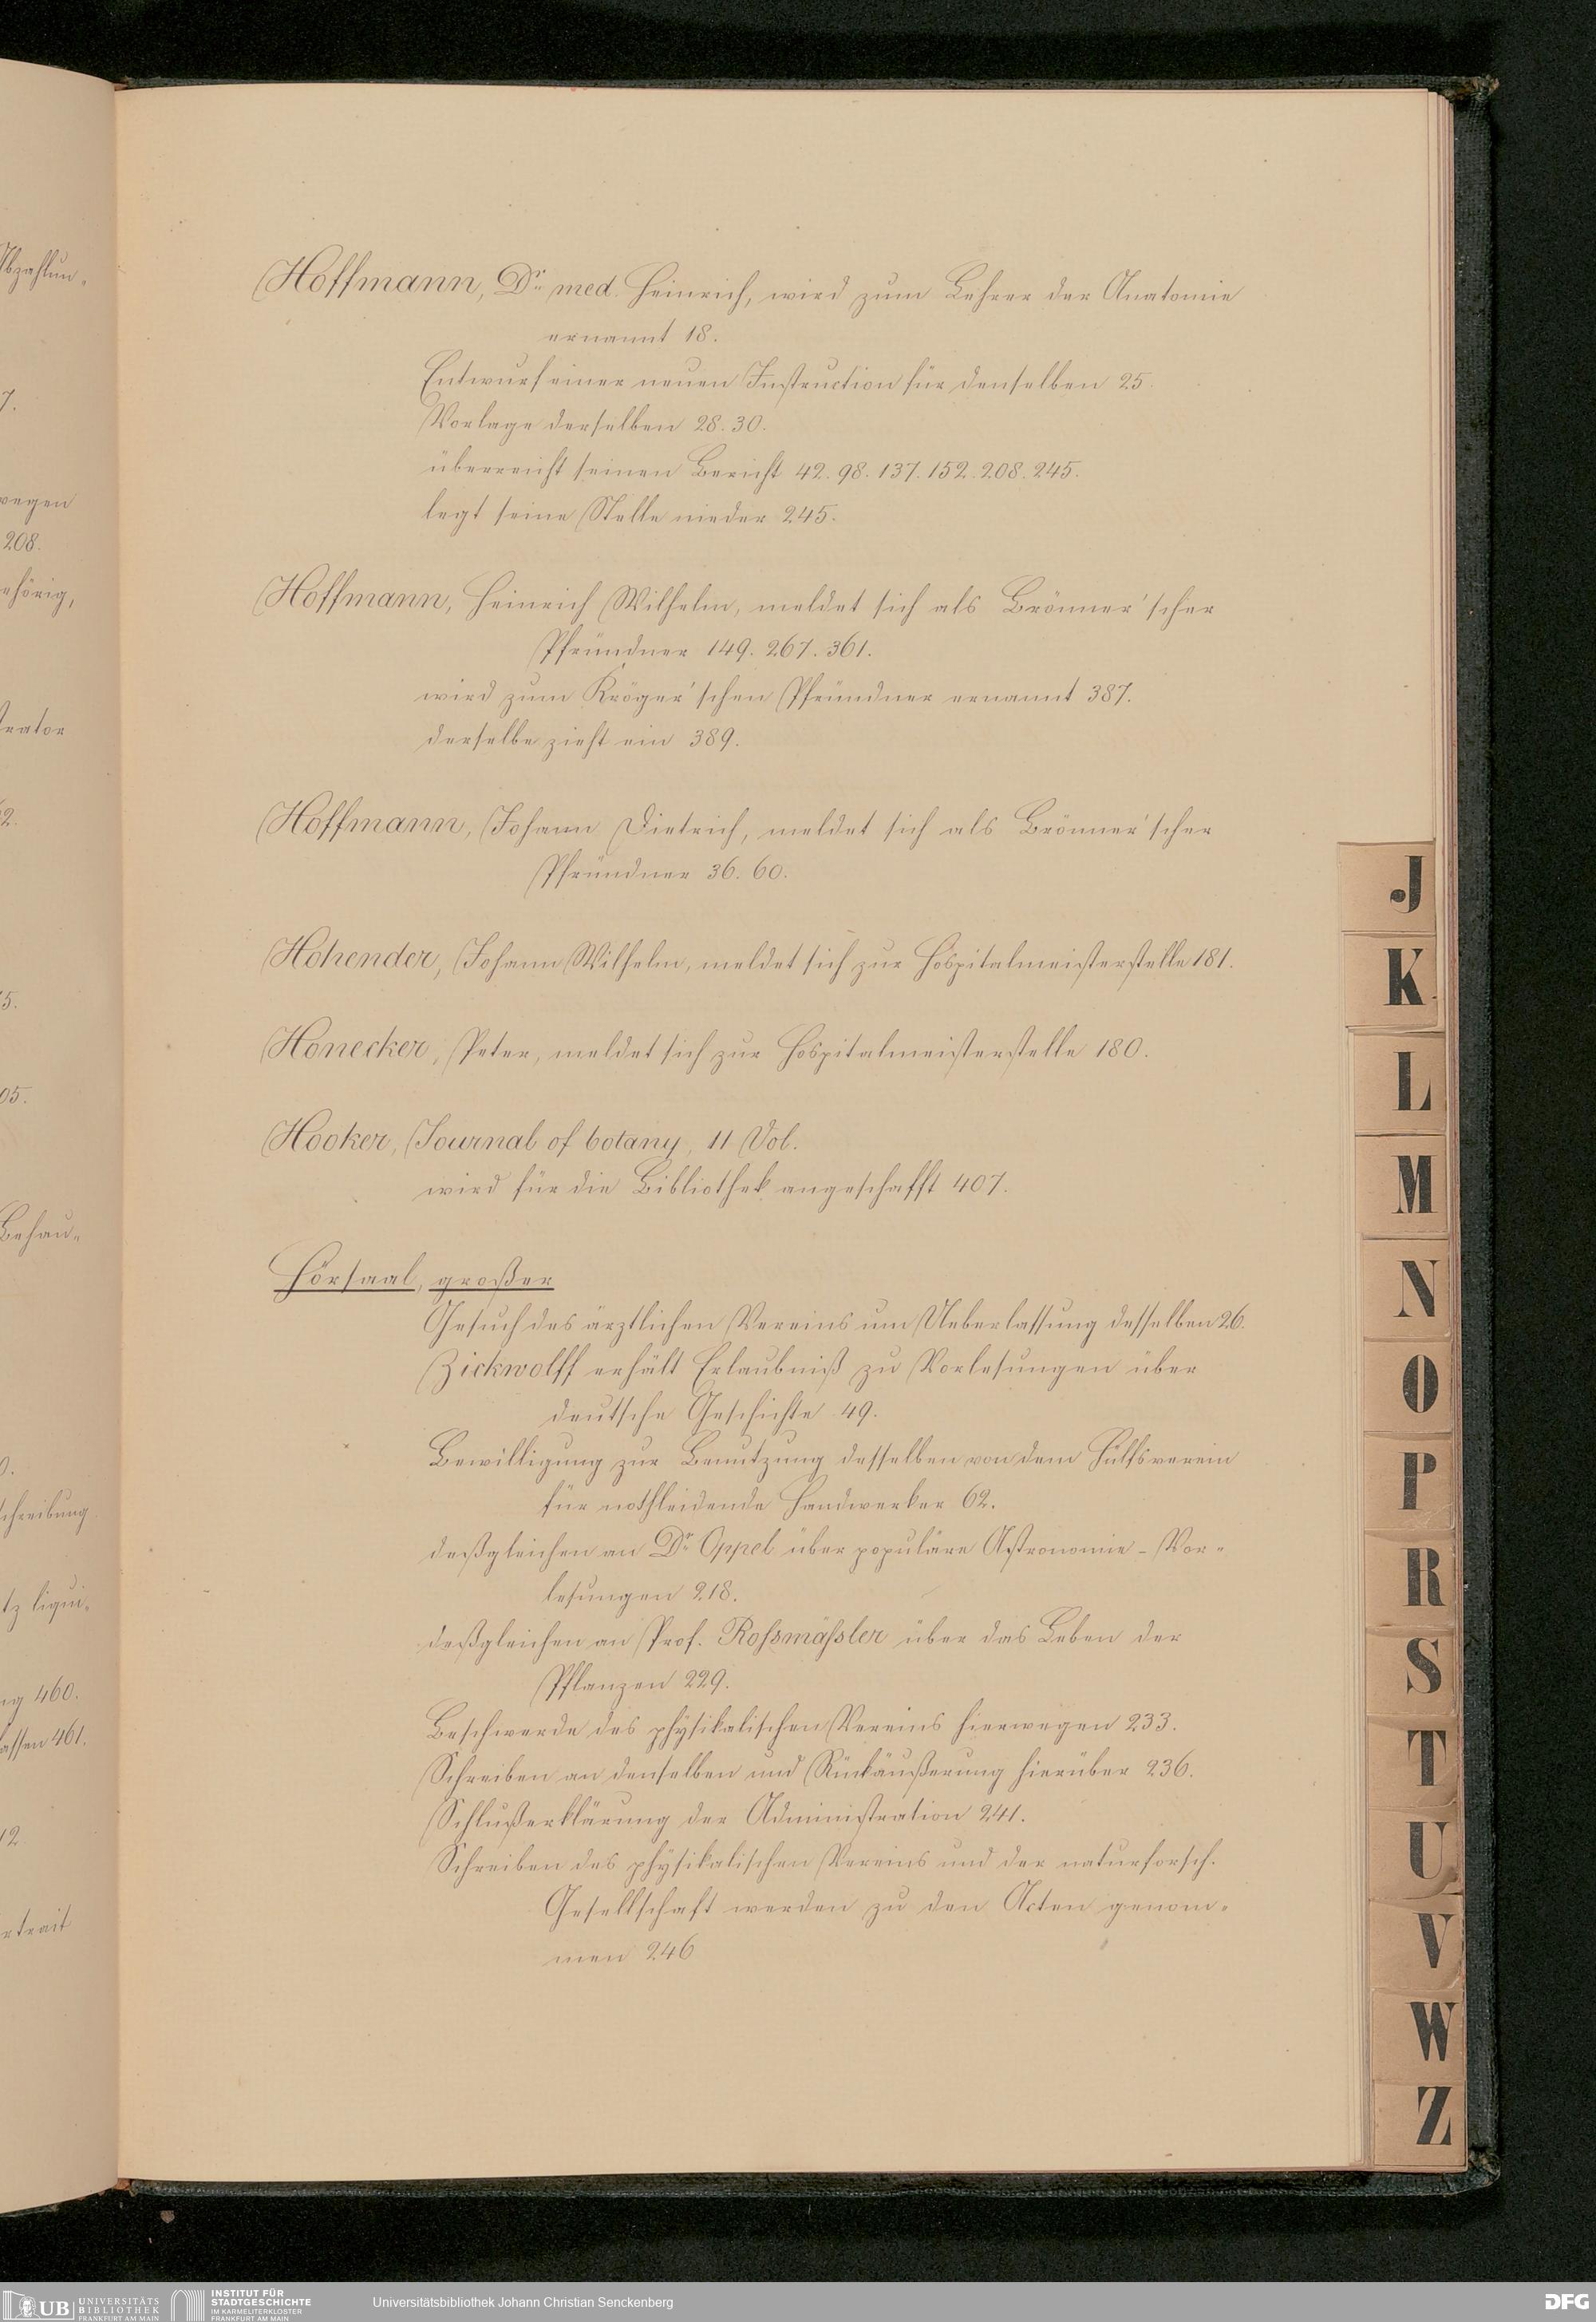 Hoffmann, Dr. med. Heinrich, wird zum Lehrer der Anatomie
ernannt 18.
Entwurf einer neuen Instruction für denselben 25.
Vorlage derselben 28. 30.
überreicht seinen Bericht 42. 98. 137. 152. 208. 245.
legt seine Stelle nieder 245.
Hoffmann, Heinrich Wilhelm, meldet sich als Brönner'scher
Pfründner 149. 267. 361.
wird zum Kröger'schen Pfründner ernannt 387.
derselbe zieht ein 389.
Hoffmann, Johann Dietrich, meldet sich als Brönner'scher
Pfründner 36. 60.
Hohender, Johann Wilhelm, meldet sich zur Hospitalmeisterstelle 181.
Honecker, Peter, meldet sich zur Hospitalmeisterstelle 180.
Hooker, Journal of botany, 11 Vol.
wird für die Bibliothek angeschafft 407.
Hörsaal, großer
Gesuch des ärztlichen Vereins um Ueberlassung desselben 26.
Zickwolff erhält Erlaubniß zu Vorlesungen über
deutsche Geschichte 49.
Bewilligung zur Benutzung desselben von dem Hülfsverein
für nothleidende Handwerker 62.
deßgleichen an Dr. Oppel über populäre Astronomie-Vor-
lesungen 218.
deßgleichen an Prof. Rossmässler über das Leben der
Pflanzen 229.
Beschwerde des physikalischen Vereins hierwegen 233.
Schreiben an denselben und Rückäußerung hierüber 236.
Schlußerklärung der Administration 241.
Schreiben des physikalischen Vereins und der naturforsch.
Gesellschaft werden zu den Acten genom-
men 246
J
K
L
M
N
O
P
R
S
T
U
V
W
Z
7.
wegen
208.
ehörig,
trator
2.
5.
05.
Behau-
0.
schreibung
tz liqui-
ng 460.
assen 461.
12.
rtrait
UB UNIVERSITÄTS
BIBLIOTHEK
FRANKFURT AM MAIN
INSTITUT FÜR
STADTGESCHICHTE
IM KARMELITERKLOSTER
FRANKFURT AM MAIN
Universitätsbibliothek Johann Christian Senckenberg
DFG